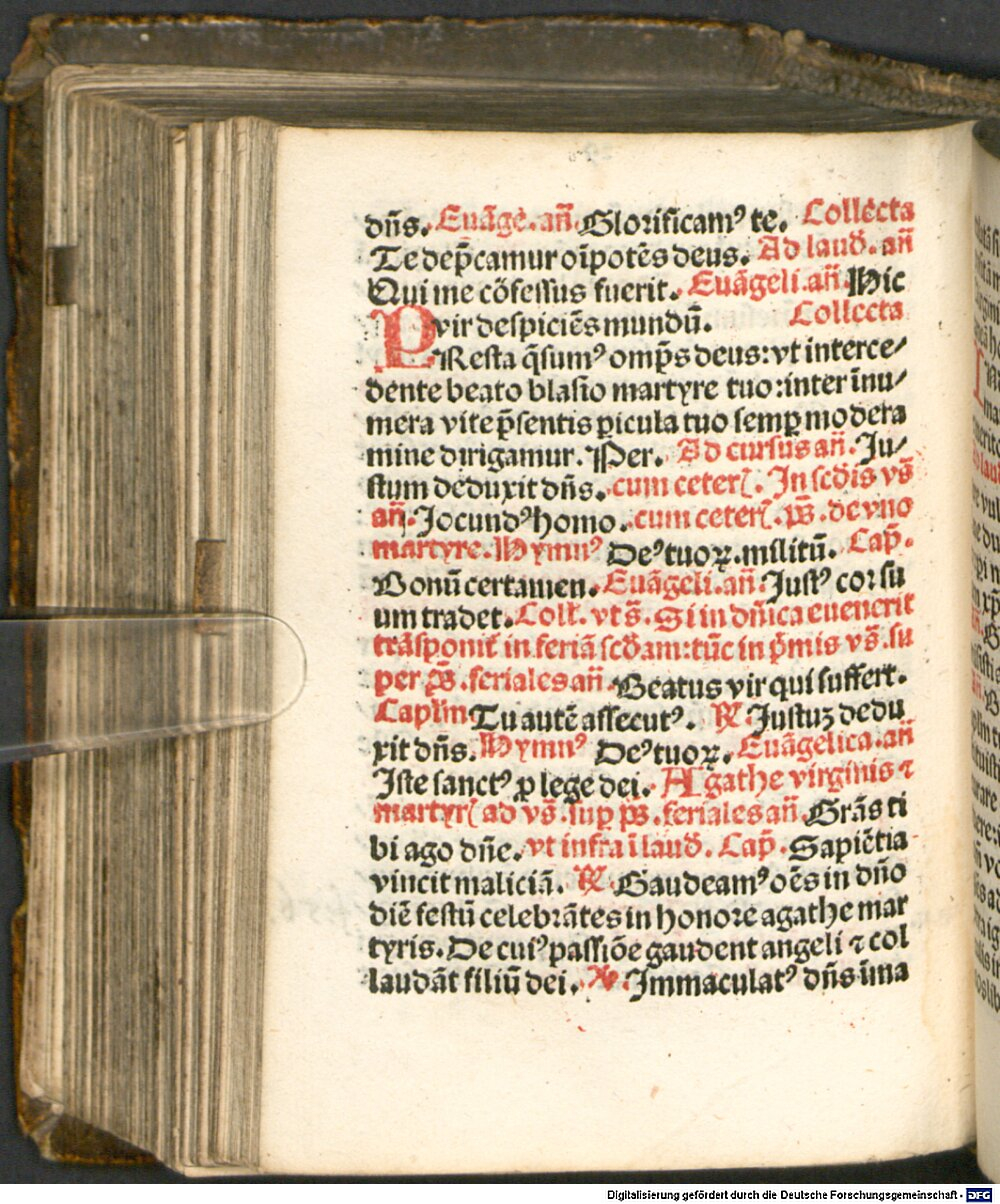 dn̄s. Euāge. an̄. Glorificamꝰ te. Collecta
Te dep̄camur oīpotēs deus. Ad laud̄. an̄
Qui me cōfessus fuerit. Euāgeli. an̄. Hic
vir despiciēs mundū. Collecta
PResta q̄sumꝰ omp̄s deus: vt interce⸗
dente beato blasio martyre tuo: inter īnu⸗
mera vite p̄sentis ꝑicula tuo semꝑ modera
mine dirigamur. Per. Ad cursus an̄. Ju⸗
stum deduxit dn̄s. cum ceterꝭ. In scd̄is vs̄
an̄. Jocundꝰ homo. cum ceterꝭ. ps̄. de vno
martyre. Hymnꝰ Deꝰ tuoꝝ. militū. Cap̄.
Bonū certamen. Euāgeli. an̄. Justꝰ cor su
um tradet. Coll̄. vt s̄. Si in dn̄ica euenerit
trāsponit̄ in feriā scd̄am: tūc in p̄mis vs̄. su
per ps̄. feriales an̄. Beatus vir qui suffert.
Caplm̄ Tu autē assecutꝰ. ℟. Justuꝫ dedu
xit dn̄s. Hymnꝰ Deꝰ tuoꝝ. Euāgelica. an̄
Iste sanctꝰ ꝓ lege dei. Agathe virginis ⁊
martyrꝭ ad vs̄. suꝑ ps̄. feriales an̄. Grās ti
bi ago dn̄e. vt infra ī laud̄. Cap̄. Sapiētia
vincit maliciā. ℟. Gaudeamꝰ oēs in dn̄o
diē festū celebrātes in honore agathe mar
tyris. De cuiꝰ passiōe gaudent angeli ⁊ col
laudāt filiū dei. ℣. Immaculatꝰ dn̄s īma
Digitalisierung gefördert durch die Deutsche Forschungsgemeinschaft - DFG